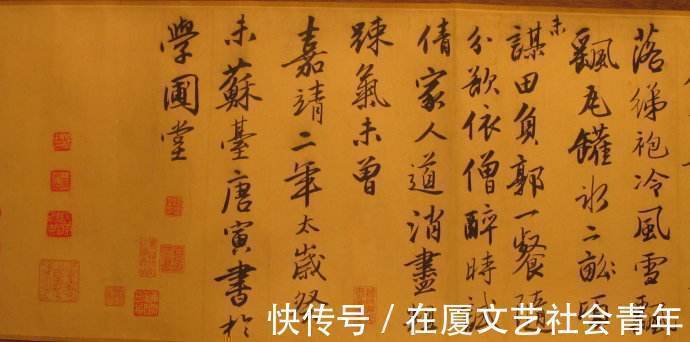 落綈袍冷風雪飄
飄瓦罐冰二畝頃
未
謀田負郭一餐隨
分欲依僧醉時試
倩家人道消盡粗
踈氣未曾
嘉靖二年太歲癸
未蘇臺唐寅書於
學圃堂
快传号 / 在厦文艺社会青年